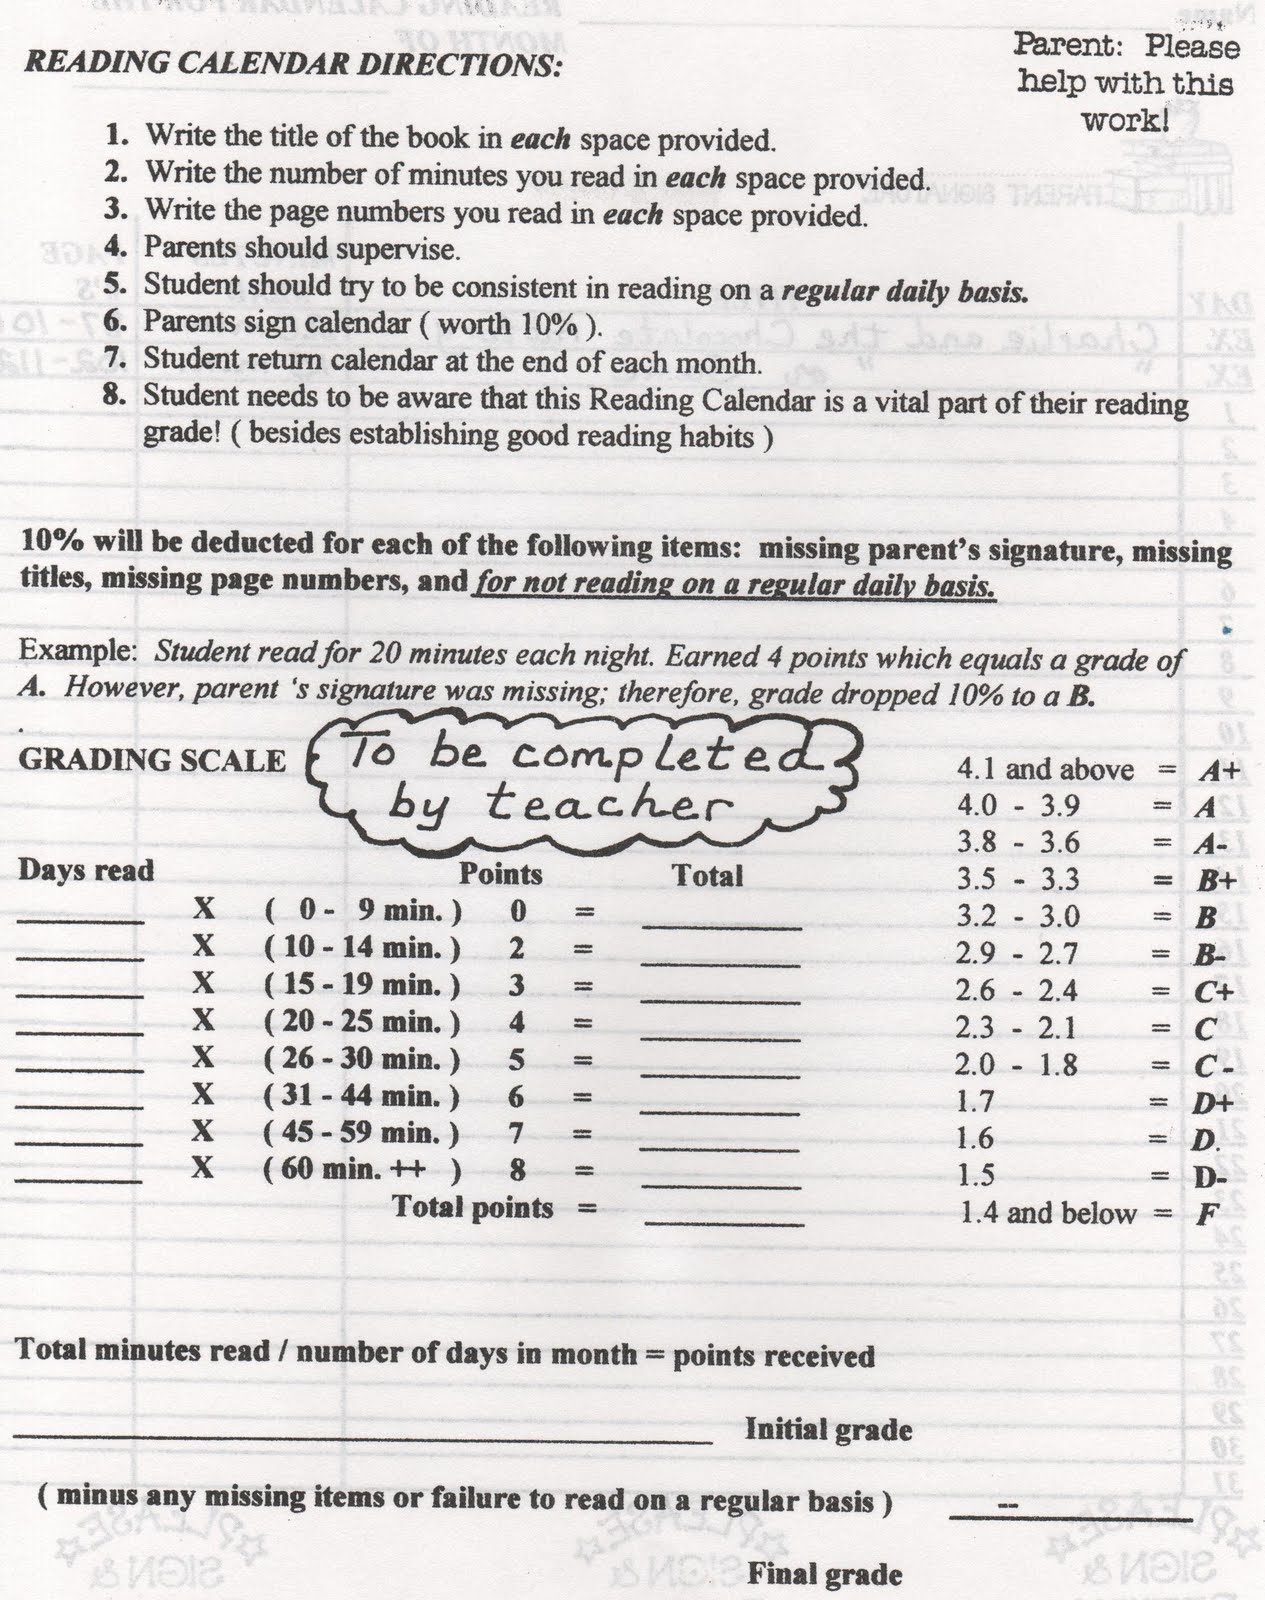 Parent: Please
help with this
work!
READING CALENDAR DIRECTIONS:
1. Write the title of the book in each space provided.
2. Write the number of minutes you read in each space provided.
3. Write the page numbers you read in each space provided.
4. Parents should supervise.
5. Student should try to be consistent in reading on a regular daily basis.
6. Parents sign calendar ( worth 10% ).
7. Student return calendar at the end of each month.
8. Student needs to be aware that this Reading Calendar is a vital part of their reading
grade! ( besides establishing good reading habits )
10% will be deducted for each of the following items: missing parent's signature, missing
titles, missing page numbers, and for not reading on a regular daily basis.
Example: Student read for 20 minutes each night. Earned 4 points which equals a grade of
A. However, parent 's signature was missing; therefore, grade dropped 10% to a B.
GRADING SCALE
To be completed
by teacher
Days read Points Total
X ( 0 - 9 min. ) 0 =
X ( 10 - 14 min. ) 2 =
X ( 15 - 19 min. ) 3 =
X ( 20 - 25 min. ) 4 =
X ( 26 - 30 min. ) 5 =
X ( 31 - 44 min. ) 6 =
X ( 45 - 59 min. ) 7 =
X ( 60 min. ++ ) 8 =
Total points =
4.1 and above = A+
4.0 - 3.9 = A
3.8 - 3.6 = A-
3.5 - 3.3 = B+
3.2 - 3.0 = B
2.9 - 2.7 = B-
2.6 - 2.4 = C+
2.3 - 2.1 = C
2.0 - 1.8 = C-
1.7 = D+
1.6 = D.
1.5 = D-
1.4 and below = F
Total minutes read / number of days in month = points received
Initial grade
( minus any missing items or failure to read on a regular basis ) --
Final grade